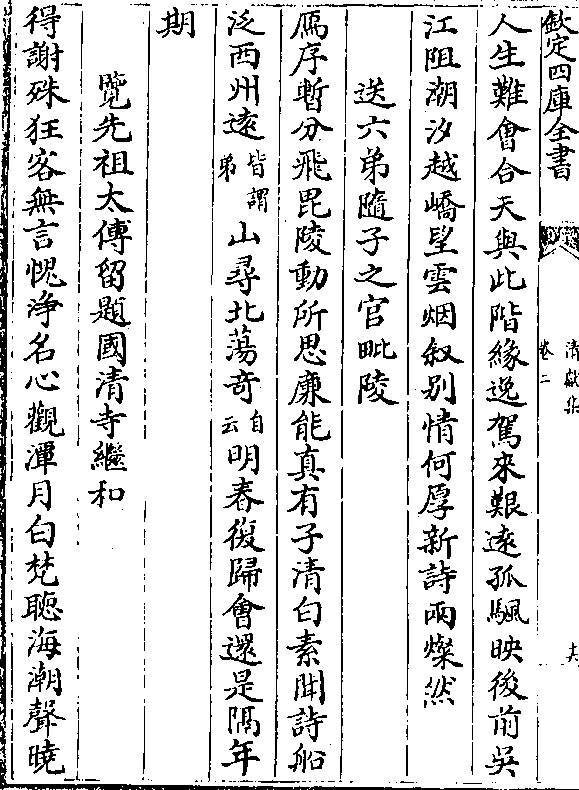 欽定四庫全書
清獻集
卷二
十六
人生難會合天與此階緣逸駕來艱逺孤颿映後前吳
江阻潮汐越嶠望雲烟叙别情何厚新詩兩燦然
送六弟隨子之官毗陵
鴈序暫分飛毘陵動所思廉能真有子清白素聞詩船
泛西州逺皆謂弟山尋北蕩竒自云明春復歸會還是隔年
期
覽先祖太傅留題國清寺繼和
得謝殊狂客無言愧浄名心觀潭月白梵聴海潮聲曉